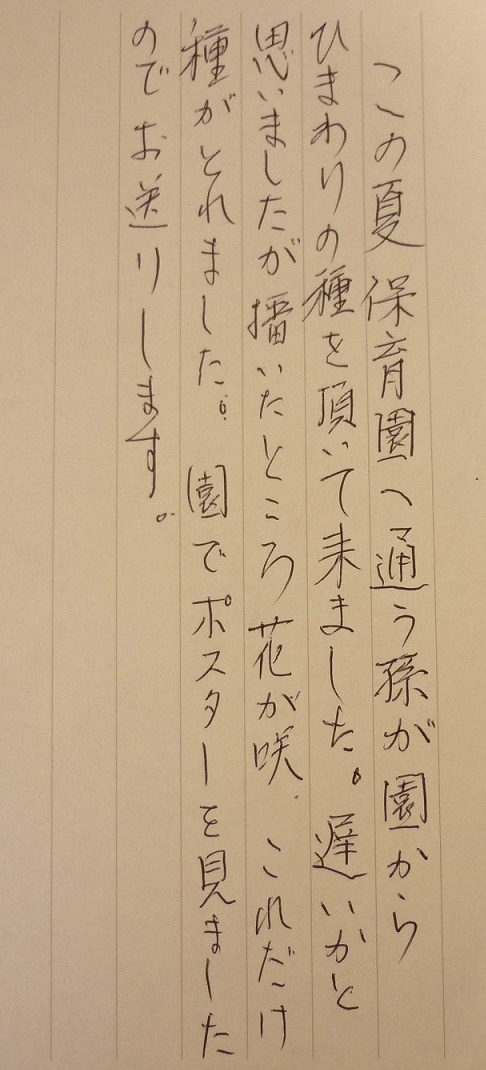 この夏 保育園へ通う孫が園から
ひまわりの種を頂いて来ました。遅いかと
思いましたが播いたところ花が咲、これだけ
種がとれました。園でポスターを見ました
のでお送りします。